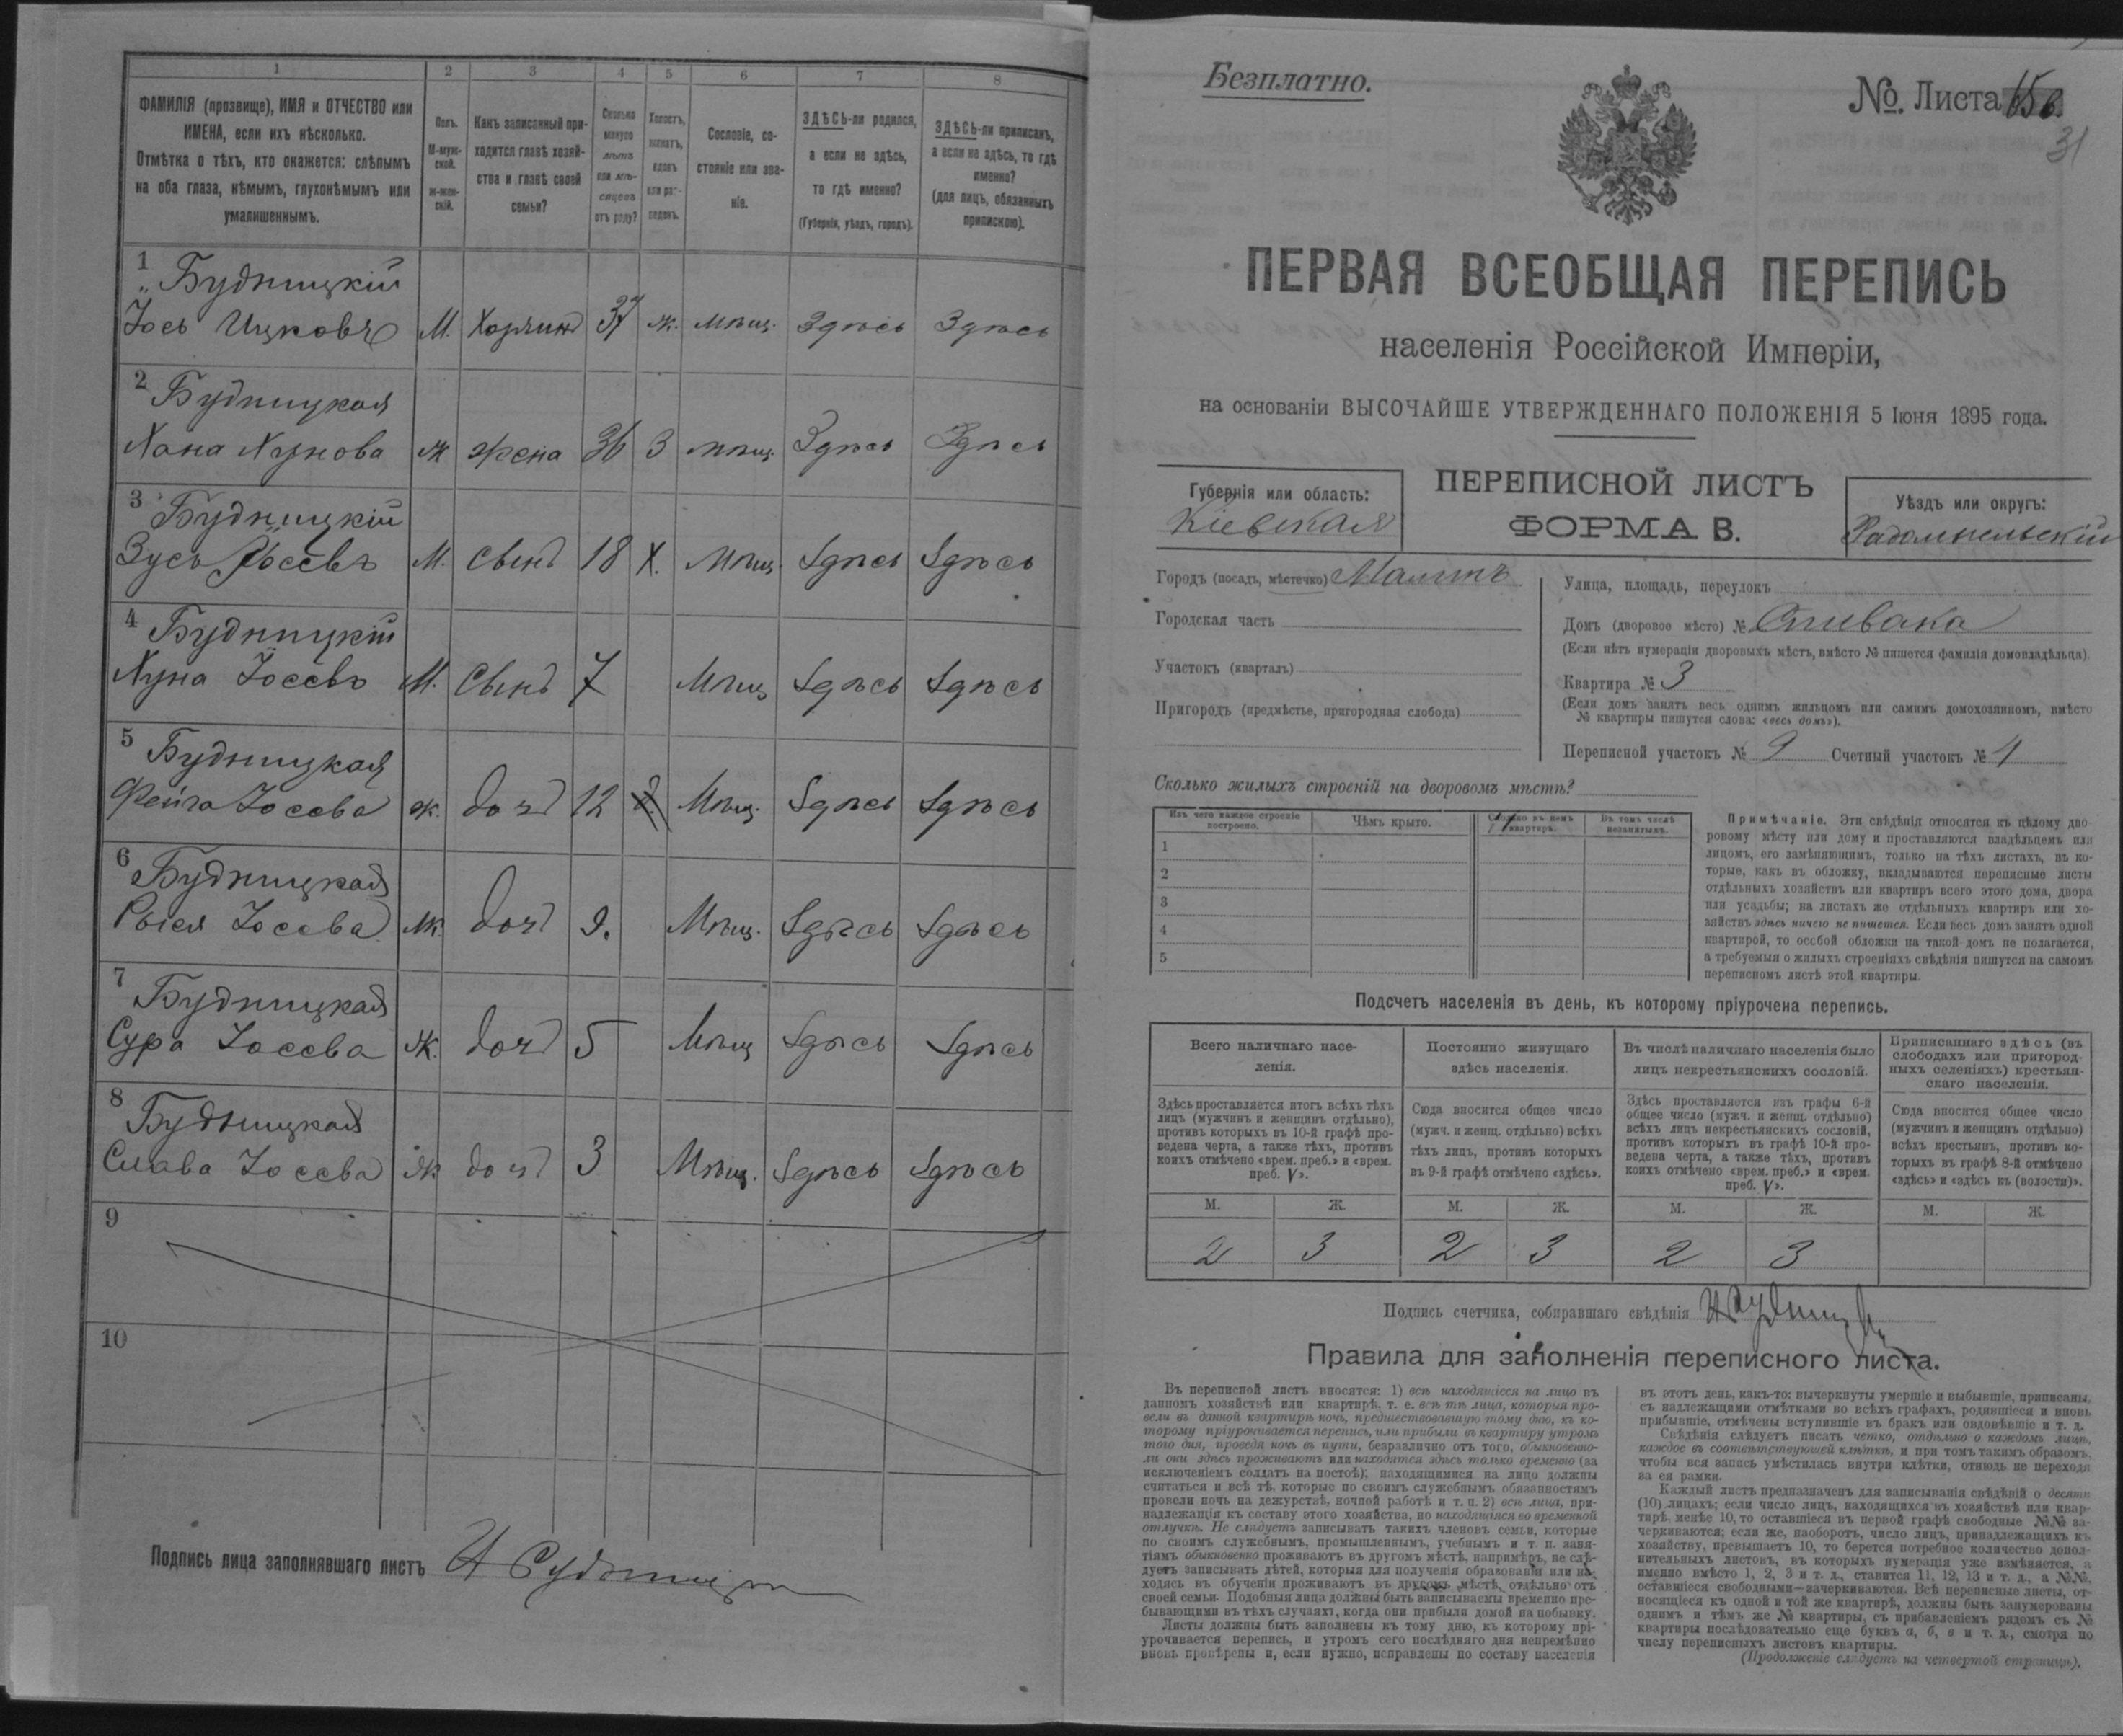 1 2 3 4 5 6 7 8
ФАМИЛІЯ (прозвище), ИМЯ и ОТЧЕСТВО или
ИМЕНА, если ихъ нѣсколько.
Отмѣтка о тѣхъ, кто окажется: слѣпымъ
на оба глаза, нѣмымъ, глухонѣмымъ или
умалишеннымъ.
Полъ.
М-муж-
ской.
ж-жен-
скій.
Какъ записанный при-
ходится главѣ хозяй-
ства и главѣ своей
семьи?
Сколько
минуло
лѣтъ
или мѣ-
сяцевъ
отъ роду?
Холостъ,
женатъ,
вдовъ
или раз-
веденъ.
Сословіе, со-
стояніе или зва-
ніе.
ЗДѢСЬ-ли родился,
а если не здѣсь,
то гдѣ именно?
(Губернія, уѣздъ, городъ).
ЗДѢСЬ-ли приписанъ,
а если не здѣсь, то гдѣ
именно?
(для лицъ, обязанныхъ
припискою).
1 Будницкій
Іось Ицковъ М. Хозяинъ 37 ж. мѣщ. Здѣсь Здѣсь
2 Будницкая
Хана Хунова ж жена 36 З мѣщ. Здѣсь Здѣсь
3 Будницкій
Зусь Іосевъ М. сынъ 18 Х. Мѣщ. Здѣсь Здѣсь
4 Будницкій
Хуна Іосевъ М. Сынъ 7 Мѣщ Здѣсь Здѣсь
5 Будницкая
Фейга Іосева ж. дочь 12 Мѣщ. Здѣсь Здѣсь
6 Будницкая
Рыся Іосева ж. дочь 9. Мѣщ. Здѣсь Здѣсь
7 Будницкая
Сура Іосева Ж. дочь 5 Мѣщ Здѣсь Здѣсь
8 Будницкая
Слава Іосева Ж дочь 3 Мѣщ. Здѣсь Здѣсь
9
10
Подпись лица заполнявшаго листъ
Безплатно.
№. Листа
31
ПЕРВАЯ ВСЕОБЩАЯ ПЕРЕПИСЬ
населенія Россійской Имперіи,
на основаніи ВЫСОЧАЙШЕ УТВЕРЖДЕННАГО ПОЛОЖЕНІЯ 5 Іюня 1895 года.
Губернія или область:
Кіевская
ПЕРЕПИСНОЙ ЛИСТЪ
ФОРМА В.
Уѣздъ или округъ:
Радомысльскій
Городъ (посадъ, мѣстечко) Малинъ
Городская часть
Участокъ (кварталъ)
Пригородъ (предмѣстье, пригородная слобода)
Улица, площадь, переулокъ
Домъ (дворовое мѣсто) № Спивака
(Если нѣтъ нумераціи дворовыхъ мѣстъ, вмѣсто № пишется фамилія домовладѣльца).
Квартира № 3
(Если домъ занятъ весь однимъ жильцомъ или самимъ домохозяиномъ, вмѣсто
№ квартиры пишутся слова: «весь домъ»).
Переписной участокъ № 9 Счетный участокъ № 4
Сколько жилыхъ строеній на дворовомъ мѣстѣ?
Изъ чего каждое строеніе
построено.
Чѣмъ крыто.
Сколько въ немъ
квартиръ.
Въ томъ числѣ
незанятыхъ.
1
2
3
4
5
Примѣчаніе. Эти свѣдѣнія относятся къ цѣлому дво-
ровому мѣсту или дому и проставляются владѣльцемъ или
лицомъ, его замѣняющимъ, только на тѣхъ листахъ, въ ко-
торые, какъ въ обложку, вкладываются переписные листы
отдѣльныхъ хозяйствъ или квартиръ всего этого дома, двора
или усадьбы; на листахъ же отдѣльныхъ квартиръ или хо-
зяйствъ здѣсь ничего не пишется. Если весь домъ занятъ одной
квартирой, то особой обложки на такой домъ не полагается,
а требуемыя о жилыхъ строеніяхъ свѣдѣнія пишутся на самомъ
переписномъ листѣ этой квартиры.
Подсчетъ населенія въ день, къ которому пріурочена перепись.
Всего наличнаго насе-
ленія.
Постоянно живущаго
здѣсь населенія.
Въ числѣ наличнаго населенія было
лицъ некрестьянскихъ сословій.
Приписаннаго здѣсь (въ
слободахъ или пригород-
ныхъ селеніяхъ) крестьян-
скаго населенія.
Здѣсь проставляется итогъ всѣхъ тѣхъ
лицъ (мужчинъ и женщинъ отдѣльно),
противъ которыхъ въ 10-й графѣ про-
ведена черта, а также тѣхъ, противъ
коихъ отмѣчено «врем. преб.» и «врем.
преб. V».
Сюда вносится общее число
(мужч. и женщ. отдѣльно) всѣхъ
тѣхъ лицъ, противъ которыхъ
въ 9-й графѣ отмѣчено «здѣсь».
Здѣсь проставляется изъ графы 6-й
общее число (мужч. и женщ. отдѣльно)
всѣхъ лицъ некрестьянскихъ сословій,
противъ которыхъ въ графѣ 10-й про-
ведена черта, а также тѣхъ, противъ
коихъ отмѣчено «врем. преб.» и «врем.
преб. V».
Сюда вносится общее число
(мужчинъ и женщинъ отдѣльно)
всѣхъ крестьянъ, противъ ко-
торыхъ въ графѣ 8-й отмѣчено
«здѣсь» и «здѣсь къ (волости)».
М. Ж. М. Ж. М. Ж. М. Ж.
2 3 2 3 2 3
Подпись счетчика, собиравшаго свѣдѣнія
Правила для заполненія переписного листа.
Въ переписной листъ вносятся: 1) всѣ находящіеся на лицо въ
данномъ хозяйствѣ или квартирѣ, т. е. всѣ тѣ лица, которыя про-
вели въ данной квартирѣ ночь, предшествовавшую тому дню, къ ко-
торому пріурочивается перепись, или прибыли въ квартиру утромъ
того дня, проведя ночь въ пути, безразлично отъ того, обыкновенно-
ли они здѣсь проживаютъ или находятся здѣсь только временно (за
исключеніемъ солдатъ на постоѣ); находящимися на лицо должны
считаться и всѣ тѣ, которые по своимъ служебнымъ обязанностямъ
провели ночь на дежурствѣ, ночной работѣ и т. п. 2) всѣ лица, при-
надлежащія къ составу этого хозяйства, но находящіяся во временной
отлучкѣ. Не слѣдуетъ записывать такихъ членовъ семьи, которые
по своимъ служебнымъ, промышленнымъ, учебнымъ и т. п. заня-
тіямъ обыкновенно проживаютъ въ другомъ мѣстѣ, напримѣръ, не слѣ-
дуетъ записывать дѣтей, которыя для полученія образованія или на-
ходясь въ обученіи проживаютъ въ другомъ мѣстѣ, отдѣльно отъ
своей семьи. Подобныя лица должны быть записываемы временно пре-
бывающими въ тѣхъ случаяхъ, когда они прибыли домой на побывку.
Листы должны быть заполнены къ тому дню, къ которому прі-
урочивается перепись, и утромъ сего послѣдняго дня непремѣнно
вновь провѣрены и, если нужно, исправлены по составу населенія
въ этотъ день, какъ-то: вычеркнуты умершіе и выбывшіе, приписаны,
съ надлежащими отмѣтками во всѣхъ графахъ, родившіеся и вновь
прибывшіе, отмѣчены вступившіе въ бракъ или овдовѣвшіе и т. д.
Свѣдѣнія слѣдуетъ писать четко, отдѣльно о каждомъ лицѣ,
каждое въ соотвѣтствующей клѣткѣ, и при томъ такимъ образомъ,
чтобы вся запись умѣстилась внутри клѣтки, отнюдь не переходя
за ея рамки.
Каждый листъ предназначенъ для записыванія свѣдѣній о десяти
(10) лицахъ; если число лицъ, находящихся въ хозяйствѣ или квар-
тирѣ, менѣе 10, то оставшіеся въ первой графѣ свободные №№ за-
черкиваются; если же, наоборотъ, число лицъ, принадлежащихъ къ
хозяйству, превышаетъ 10, то берется потребное количество допол-
нительныхъ листовъ, въ которыхъ нумерація уже измѣняется, а
именно вмѣсто 1, 2, 3 и т. д., ставится 11, 12, 13 и т. д., а №№,
оставшіеся свободными—зачеркиваются. Всѣ переписные листы, от-
носящіеся къ одной и той же квартирѣ, должны быть занумерованы
однимъ и тѣмъ же № квартиры, съ прибавленіемъ рядомъ съ №
квартиры послѣдовательно еще буквъ а, б, в и т. д., смотря по
числу переписныхъ листовъ квартиры.
(Продолженіе слѣдуетъ на четвертой страницѣ).